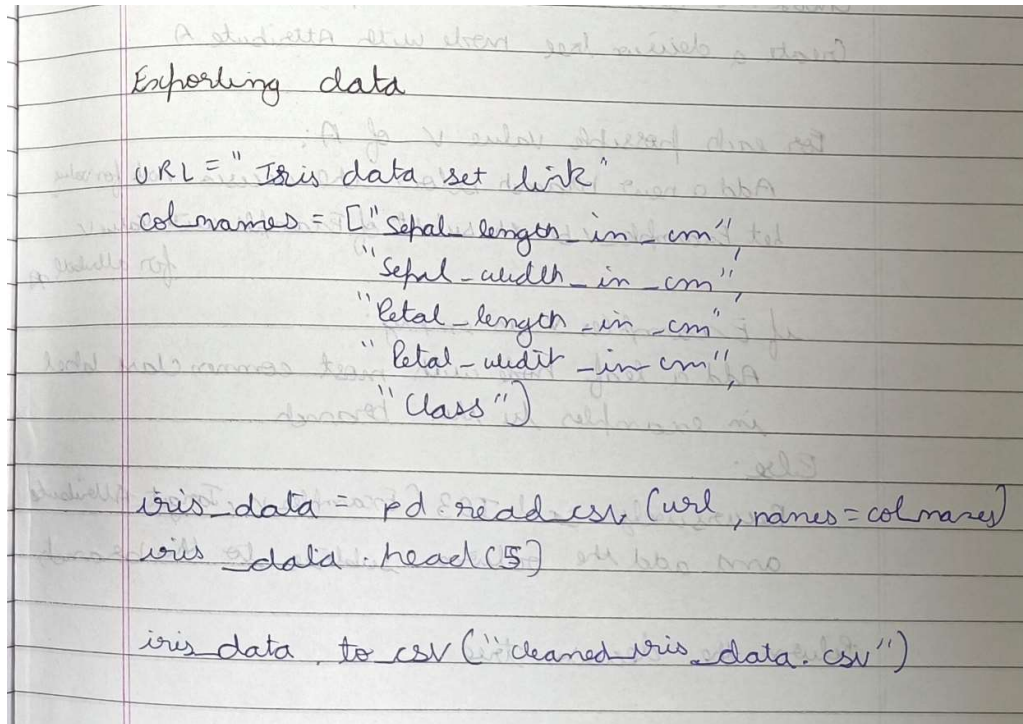 Exporting data
URL = "Iris data set link"
colnames = ["Sepal_length_in_cm",
"Sepal_width_in_cm",
"Petal_length_in_cm"
"Petal_widit_in cm",
"Class"]
iris_data = pd.read_csv (url, names=colnames)
iris_data.head(5]
iris_data.to_csv ("cleaned_iris_data.csv")